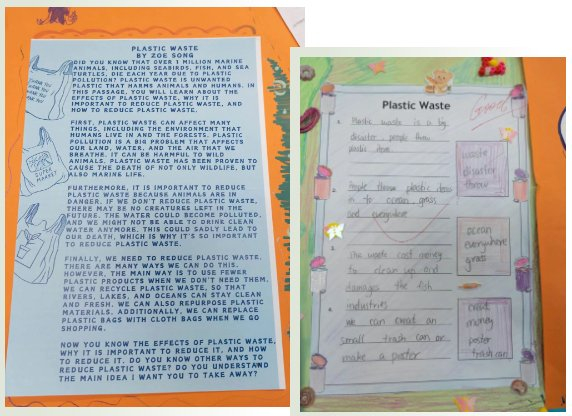 PLASTIC WASTE
BY ZOE SONG
DID YOU KNOW THAT OVER 1 MILLION MARINE
ANIMALS, INCLUDING SEABIRDS, FISH, AND SEA
TURTLES, DIE EACH YEAR DUE TO PLASTIC
POLLUTION? PLASTIC WASTE IS UNWANTED
PLASTIC THAT HARMS ANIMALS AND HUMANS. IN
THIS PASSAGE, YOU WILL LEARN ABOUT THE
EFFECTS OF PLASTIC WASTE, WHY IT IS
IMPORTANT TO REDUCE PLASTIC WASTE, AND
HOW TO REDUCE PLASTIC WASTE.
FIRST, PLASTIC WASTE CAN AFFECT MANY
THINGS, INCLUDING THE ENVIRONMENT THAT
HUMANS LIVE IN AND THE FORESTS. PLASTIC
POLLUTION IS A BIG PROBLEM THAT AFFECTS
OUR LAND, WATER, AND THE AIR THAT WE
BREATHE. IT CAN BE HARMFUL TO WILD
ANIMALS. PLASTIC WASTE HAS BEEN PROVEN TO
CAUSE THE DEATH OF NOT ONLY WILDLIFE, BUT
ALSO MARINE LIFE.
FURTHERMORE, IT IS IMPORTANT TO REDUCE
PLASTIC WASTE BECAUSE ANIMALS ARE IN
DANGER. IF WE DON'T REDUCE PLASTIC WASTE,
THERE MAY BE NO CREATURES LEFT IN THE
FUTURE. THE WATER COULD BECOME POLLUTED,
AND WE MIGHT NOT BE ABLE TO DRINK CLEAN
WATER ANYMORE. THIS COULD SADLY LEAD TO
OUR DEATH, WHICH IS WHY IT'S SO IMPORTANT
TO REDUCE PLASTIC WASTE.
FINALLY, WE NEED TO REDUCE PLASTIC WASTE.
THERE ARE MANY WAYS WE CAN DO THIS.
HOWEVER, THE MAIN WAY IS TO USE FEWER
PLASTIC PRODUCTS WHEN WE DON'T NEED THEM.
WE CAN RECYCLE PLASTIC WASTE, SO THAT
RIVERS, LAKES, AND OCEANS CAN STAY CLEAN
AND FRESH. WE CAN ALSO REPURPOSE PLASTIC
MATERIALS. ADDITIONALLY, WE CAN REPLACE
PLASTIC BAGS WITH CLOTH BAGS WHEN WE GO
SHOPPING.
NOW YOU KNOW THE EFFECTS OF PLASTIC WASTE,
WHY IT IS IMPORTANT TO REDUCE IT, AND HOW
TO REDUCE IT. DO YOU KNOW OTHER WAYS TO
REDUCE PLASTIC WASTE? DO YOU UNDERSTAND
THE MAIN IDEA I WANT YOU TO TAKE AWAY?
THANK YOU
THANK YOU
THANK YOU
SUPER
MARKET
Plastic Waste
1. Plastic waste is a big
disaster people throw
plastic
waste
disaster
throw
2. People throw plastic items
in to ocean, grass
and everywhere
ocean
everywhere
grass
3. The waste cost money
to clean up and
damages the fish
industries
4. we can creat an
small trash can or
make a poster
creat
money
poster
trash can